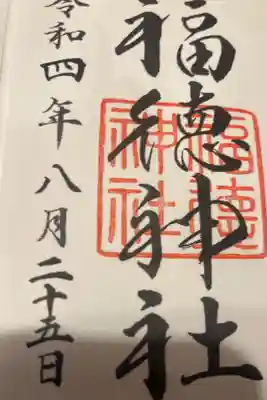 福徳神社
福徳
神社
令和四年八月二十五日